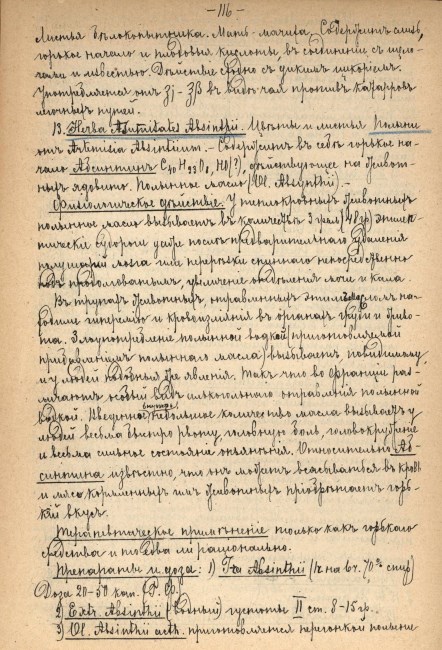 — 116 —
Листья бѣлокопытника. Мать-мачиха. Содержитъ слизь,
горькое начало и плодовыя кислоты, въ соединеніи съ щело-
чами и известью. Дѣйствіе сходно съ дикимъ цикоріемъ.
Употребляется отъ ʒj – ʒβ въ видѣ чая противъ катарровъ
млечныхъ путей.
13. Herba Summitates Absinthii. Цвѣты и листья Полыни
отъ Artemisia Absinthium. — Содержитъ въ себѣ горькое на-
чало Абсинтинъ C40 H28 O8, HO(?), дѣйствующее на живот-
ныхъ ядовито. Полынное масло (Ol. Absynthii). —
Физіологическое дѣйствіе. У теплокровныхъ животныхъ
полынное масло вызываетъ въ количествѣ 3 грам. (48 гр) эпилеп-
тическія судороги даже послѣ предварительнаго удаленія
полушарій мозга или перерѣзки спиннаго непосредственно
подъ продолговатымъ, увеличеніе отдѣленія мочи и кала.
Въ трупахъ животныхъ, отравленныхъ этимъ масломъ на-
ходили гиперемію и кровоизліянія въ органахъ груди и живо-
та. Злоупотребленіе полынной водкой, приготовляемой
прибавленіемъ полыннаго масла, вызываетъ повидимому
и у людей подобныя же явленія. Такъ что во Франціи раз-
личаютъ особый видъ алкогольнаго отравленія полынной
водкой. Введенное внутрь небольшое количество масла вызываетъ у
людей весьма быстро рвоту, головную боль, головокруженіе
и весьма сильное состояніе опьяненія. Относительно Аб-
синтина извѣстно, что онъ можетъ всасываться въ кровь
и мясо кормленныхъ имъ животныхъ пріобрѣтаетъ горь-
кій вкусъ.
Терапевтическое примѣненіе только какъ горькаго
средства и то едва ли раціонально.
Препараты и доза: 1) T-ra Absinthii (1ч на 6ч. 70% спир)
Доза 20-50 кап. (P. G.)
2) Extr. Absinthii (водный) густоты II ст. 8-15 гр.
3) Ol. Absinthii aeth. приготовляется перегонкой полыни